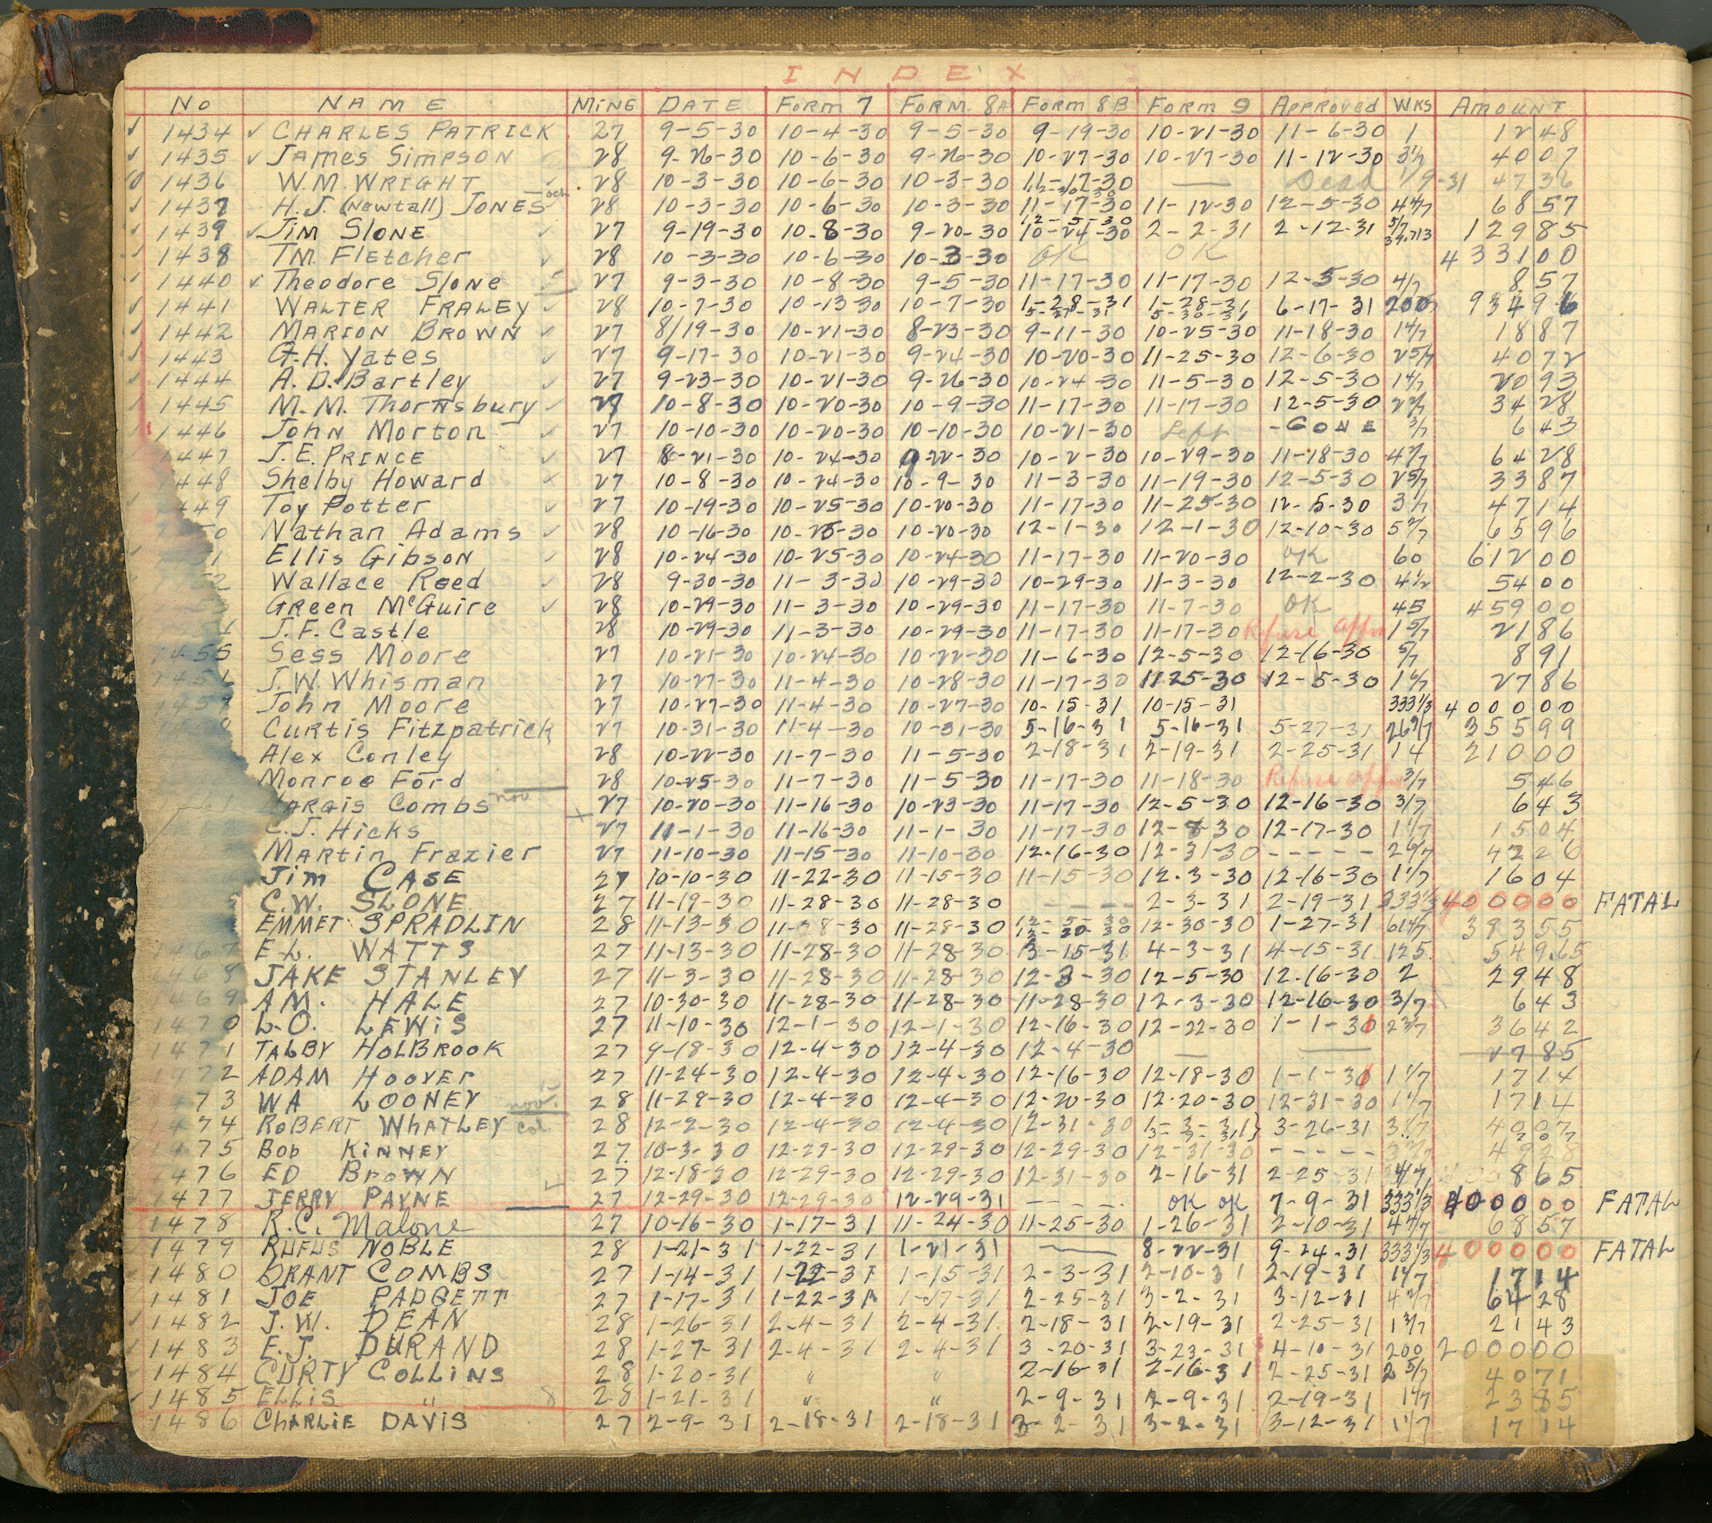 INDEX
No NAME MINE DATE FORM 7 FORM 8A FORM 8B FORM 9 APPROVED WKS AMOUNT
1434 CHARLES PATRICK 27 9-5-30 10-4-30 9-5-30 9-19-30 10-21-30 11-6-30 1 1248
1435 JAMES SIMPSON 28 9-26-30 10-6-30 9-26-30 10-27-30 10-27-30 11-12-30 3 1/7 4007
1436 W.M. WRIGHT 28 10-3-30 10-6-30 10-3-30 11-17-30 — Dead 1/9-31 4736
1437 H.J. (Newtall) JONES 28 10-3-30 10-6-30 10-3-30 11-17-30 11-12-30 12-5-30 4 4/7 6857
1439 JIM SLONE 27 9-19-30 10-8-30 9-20-30 10-24-30 2-2-31 2-12-31 12985
1438 TM. Fletcher 28 10-3-30 10-6-30 10-3-30 OK OK 433100
1440 Theodore Slone 27 9-3-30 10-8-30 9-5-30 11-17-30 11-17-30 12-5-30 4/7 857
1441 WALTER FRALEY 28 10-7-30 10-13-30 10-7-30 1-28-31 1-28-31 6-17-31 200 93496
1442 MARION BROWN 27 8/19-30 10-21-30 8-23-30 9-11-30 10-25-30 11-18-30 1 4/7 1887
1443 G.H. Yates 27 9-17-30 10-21-30 9-24-30 10-20-30 11-25-30 12-6-30 2 5/7 4072
1444 A.D. Bartley 27 9-23-30 10-21-30 9-26-30 10-24-30 11-5-30 12-5-30 1 4/7 2093
1445 M.M. Thornsbury 27 10-8-30 10-20-30 10-9-30 11-17-30 11-17-30 12-5-30 2 2/7 3428
1446 John Morton 27 10-10-30 10-20-30 10-10-30 10-21-30 Left -GONE 3/7 643
1447 J.E. PRINCE 27 8-21-30 10-24-30 9-22-30 10-2-30 10-29-30 11-18-30 4 2/7 6428
448 Shelby Howard 27 10-8-30 10-24-30 10-9-30 11-3-30 11-19-30 12-5-30 2 5/7 3387
449 Toy Potter 27 10-19-30 10-25-30 10-20-30 11-17-30 11-25-30 12-5-30 3 1/7 4714
0 Nathan Adams 28 10-16-30 10-25-30 10-20-30 12-1-30 12-1-30 12-10-30 5 2/7 6596
1 Ellis Gibson 28 10-24-30 10-25-30 10-24-30 11-17-30 11-20-30 OK 60 61200
2 Wallace Reed 28 9-30-30 11-3-30 10-29-30 10-29-30 11-3-30 12-2-30 4 1/2 5400
Green McGuire 28 10-29-30 11-3-30 10-29-30 11-17-30 11-7-30 OK 45 45900
J.F. Castle 28 10-29-30 11-3-30 10-29-30 11-17-30 11-17-30 Refuse appro 1 5/7 2186
1455 Sess Moore 27 10-21-30 10-24-30 10-22-30 11-6-30 12-5-30 12-16-30 5/7 891
1456 J.W. Whisman 27 10-27-30 11-4-30 10-28-30 11-17-30 11-25-30 12-5-30 1 6/7 2786
1457 John Moore 27 10-27-30 11-4-30 10-27-30 10-15-31 10-15-31 333 1/3 400000
Curtis Fitzpatrick 27 10-31-30 11-4-30 10-31-30 5-16-31 5-16-31 5-27-31 35599
Alex Conley 28 10-22-30 11-7-30 11-5-30 2-18-31 2-19-31 2-25-31 14 21000
Monroe Ford 28 10-25-30 11-7-30 11-5-30 11-17-30 11-18-30 Refuse appro 3/7 546
Margis Combs nov 27 10-20-30 11-16-30 10-23-30 11-17-30 12-5-30 12-16-30 3/7 643
C.J. Hicks 27 11-1-30 11-16-30 11-1-30 11-17-30 12-8-30 12-17-30 1 1/7 1504
Martin Frazier 27 11-10-30 11-15-30 11-10-30 12-16-30 12-31-30 ----- 2 6/7 4226
Jim CASE 27 10-10-30 11-22-30 11-15-30 11-15-30 12-3-30 12-16-30 1 1/7 1604
C.W. SLONE 27 11-19-30 11-28-30 11-28-30 ---- 2-3-31 2-19-31 333 1/3 400000 FATAL
EMMET SPRADLIN 28 11-13-30 11-28-30 11-28-30 12-30-30 12-30-30 1-27-31 38355
1467 E.L. WATTS 27 11-13-30 11-28-30 11-28-30 3-15-31 4-3-31 4-15-31 125 54965
468 JAKE STANLEY 27 11-3-30 11-28-30 11-28-30 12-3-30 12-5-30 12-16-30 2 2948
1469 AM. HALE 27 10-30-30 11-28-30 11-28-30 11-28-30 12-3-30 12-16-30 3/7 643
1470 L.O. LEWIS 27 11-10-30 12-1-30 12-1-30 12-16-30 12-22-30 1-1-31 2 3/7 3642
1471 TALBY HOLBROOK 27 9-18-30 12-4-30 12-4-30 12-4-30 — — 2785
1472 ADAM HOOVER 27 11-24-30 12-4-30 12-4-30 12-16-30 12-18-30 1-1-31 1 1/7 1714
73 WA LOONEY nov. 28 11-28-30 12-4-30 12-4-30 12-20-30 12-20-30 12-31-30 1 1/7 1714
474 ROBERT WHATLEY col 28 12-2-30 12-4-30 12-4-30 12-31-30 1-3-31 3-26-31 3 1/7 4007
475 BOB KINNEY 27 10-3-30 12-29-30 12-29-30 12-29-30 12-31-30 ----- 4928
1476 ED BROWN 27 12-18-30 12-29-30 12-29-30 12-31-30 2-16-31 2-25-31 4/7 865
1477 JERRY PAYNE 27 12-29-30 12-29-30 12-29-31 ---- OK OK 7-9-31 333 1/3 400000 FATAL
1478 R.C. Malone 27 10-16-30 1-17-31 11-24-30 11-25-30 1-26-31 2-10-31 4 4/7 6857
1479 RUFUS NOBLE 28 1-21-31 1-22-31 1-21-31 — 8-22-31 9-24-31 333 1/3 400000 FATAL
1480 GRANT COMBS 27 1-14-31 1-22-31 1-15-31 2-3-31 2-10-31 2-19-31 1 1/7 1714
1481 JOE PADGETT 27 1-17-31 1-22-31 1-17-31 2-25-31 3-2-31 3-12-31 4 2/7 6428
1482 J.W. DEAN 28 1-26-31 2-4-31 2-4-31 2-18-31 2-19-31 2-25-31 1 3/7 2143
1483 E.J. DURAND 28 1-27-31 2-4-31 2-4-31 3-20-31 3-23-31 4-10-31 200 200000
1484 CURTY COLLINS 28 1-20-31 " " 2-16-31 2-16-31 2-25-31 2 5/7 4071
1485 ELLIS " 8 28 1-21-31 " " 2-9-31 2-9-31 2-19-31 1 4/7 2385
1486 CHARLIE DAVIS 27 2-9-31 2-18-31 2-18-31 3-2-31 3-2-31 3-12-31 1 1/7 1714